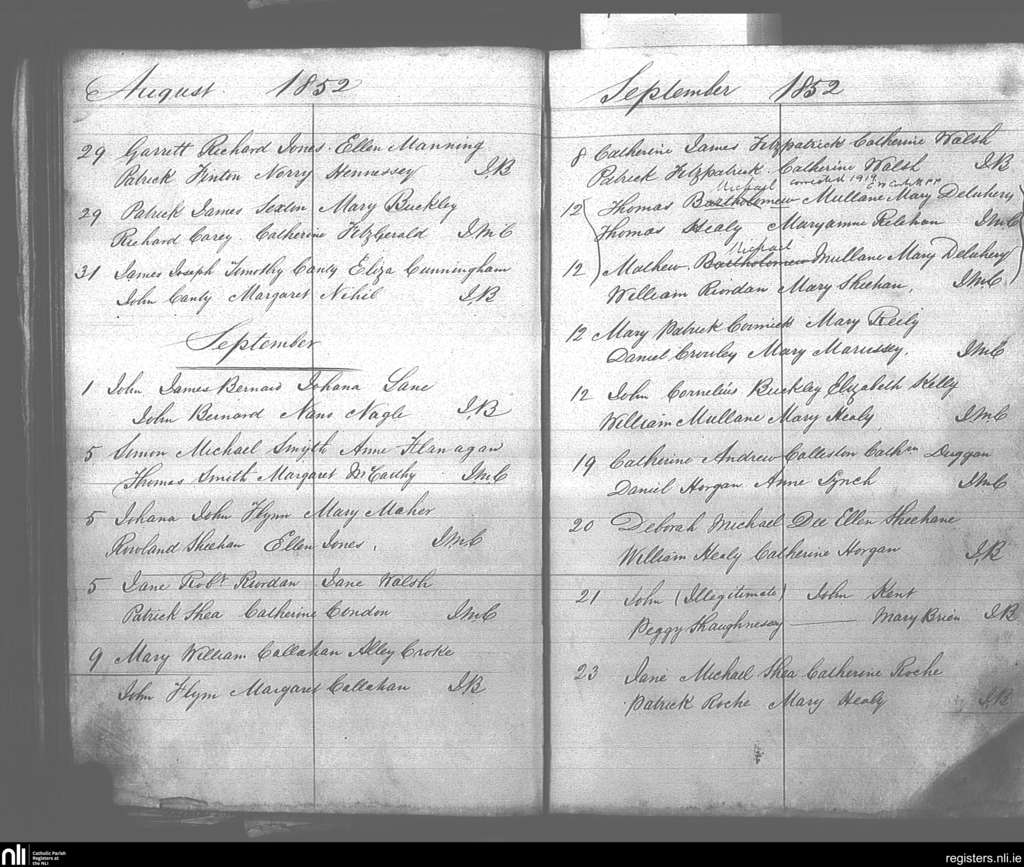 August 1852
29 Garrett Richard Jones. Ellen Manning
Patrick Fenton Norry Hennessey J,B
29 Patrick James Sexton Mary Buckley
Richard Carey. Catherine FitzGerald J McC
31 James Joseph Timothy Canty Eliza Cunningham
John Canty Margaret Nihil J,B
September
1 John James Bernard Johana Lane
John Bernard Nano Nagle J,B
5 Simon Michael Smyth Anne Flanagan
Thomas Smith Margaret McCarthy J McC
5 Johana John Flynn Mary Maher
Rowland Sheehan Ellen Jones, J McC
5 Jane Robt Riordan Jane Walsh
Patrick Shea Catherine Condon J McC
9 Mary William Callahan Alley Croke
John Flynn Margaret Callahan J,B
September 1852
8 Catherine James Fitzpatrick Catherine Walsh
Patrick Fitzpatrick. Catherine Walsh J,B
Michael corrected 1919
12 Thomas Bartholomew Mullane Mary Deluhery
Thomas Healy Maryanne Relehan J McC
Michael
12 Mathew Bartholomew Mullane Mary Deluhery
William Riordan Mary Sheehan, J McC
12 Mary Patrick Cormick Mary Reily
Daniel Crowley Mary J McC
12 John Cornelius Buckley Elizabeth Kelly
William Mullane Mary Healy, J McC
19 Catherine Andrew Colleston Cathn Duggan
Daniel Horgan. Anne Lynch J McC
20 Deborah Michael Dee Ellen Sheehane
William Healy Catherine Horgan J,B
21 John (Illegitimate) John Kent
Peggy Shaughnessy — Mary Brien J,B
23 Jane Michael Shea Catherine Roche
Patrick Roche Mary Healy J,B
nli Catholic Parish Registers at the NLI
registers.nli.ie